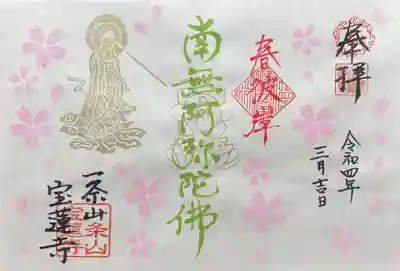 奉拝
令和四年
三月吉日
春彼岸
南無阿弥陀佛
一条山
宝蓮寺